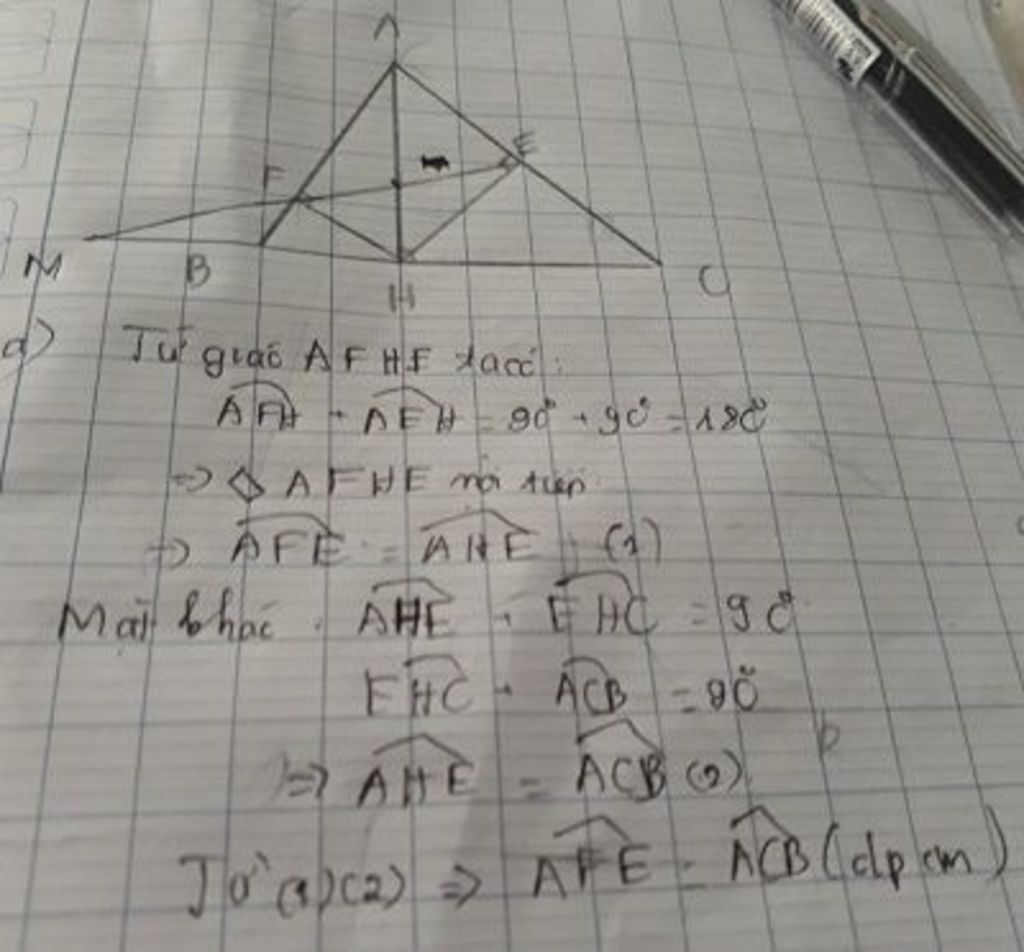 A
F
E
M
B
H
C
a) Tứ giác AFHE ta có:
AFH + AEH = 90° + 90° = 180°
=> ◇ AFHE nội tiếp
=> AFE = AHE (1)
Mặt khác: AHE + EHC = 90°
EHC + ACB = 90°
=> AHE = ACB (2)
Từ (1)(2) => AFE = ACB (đpcm)